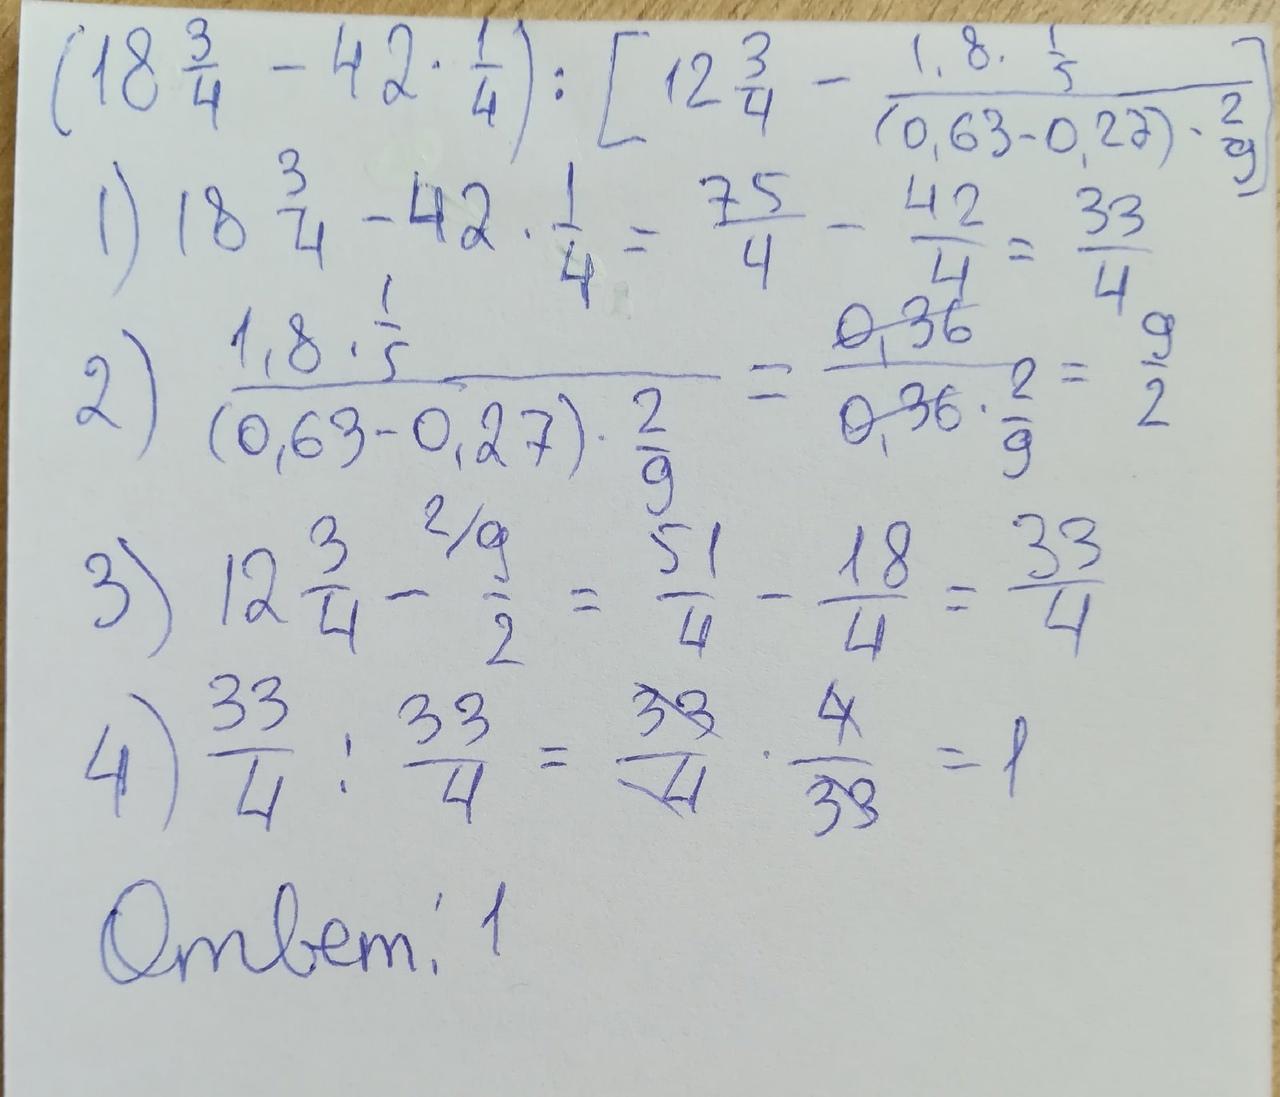 (18 3/4 - 42 · 1/4) : [12 3/4 - (1,8 · 1/5)/((0,63-0,27) · 2/9)]
1) 18 3/4 - 42 · 1/4 = 75/4 - 42/4 = 33/4
2) (1,8 · 1/5)/((0,63-0,27) · 2/9) = 0,36/(0,36 · 2/9) = 9/2
3) 12 3/4 - 2/ 9/2 = 51/4 - 18/4 = 33/4
4) 33/4 : 33/4 = 33/4 · 4/33 = 1
Ответ: 1